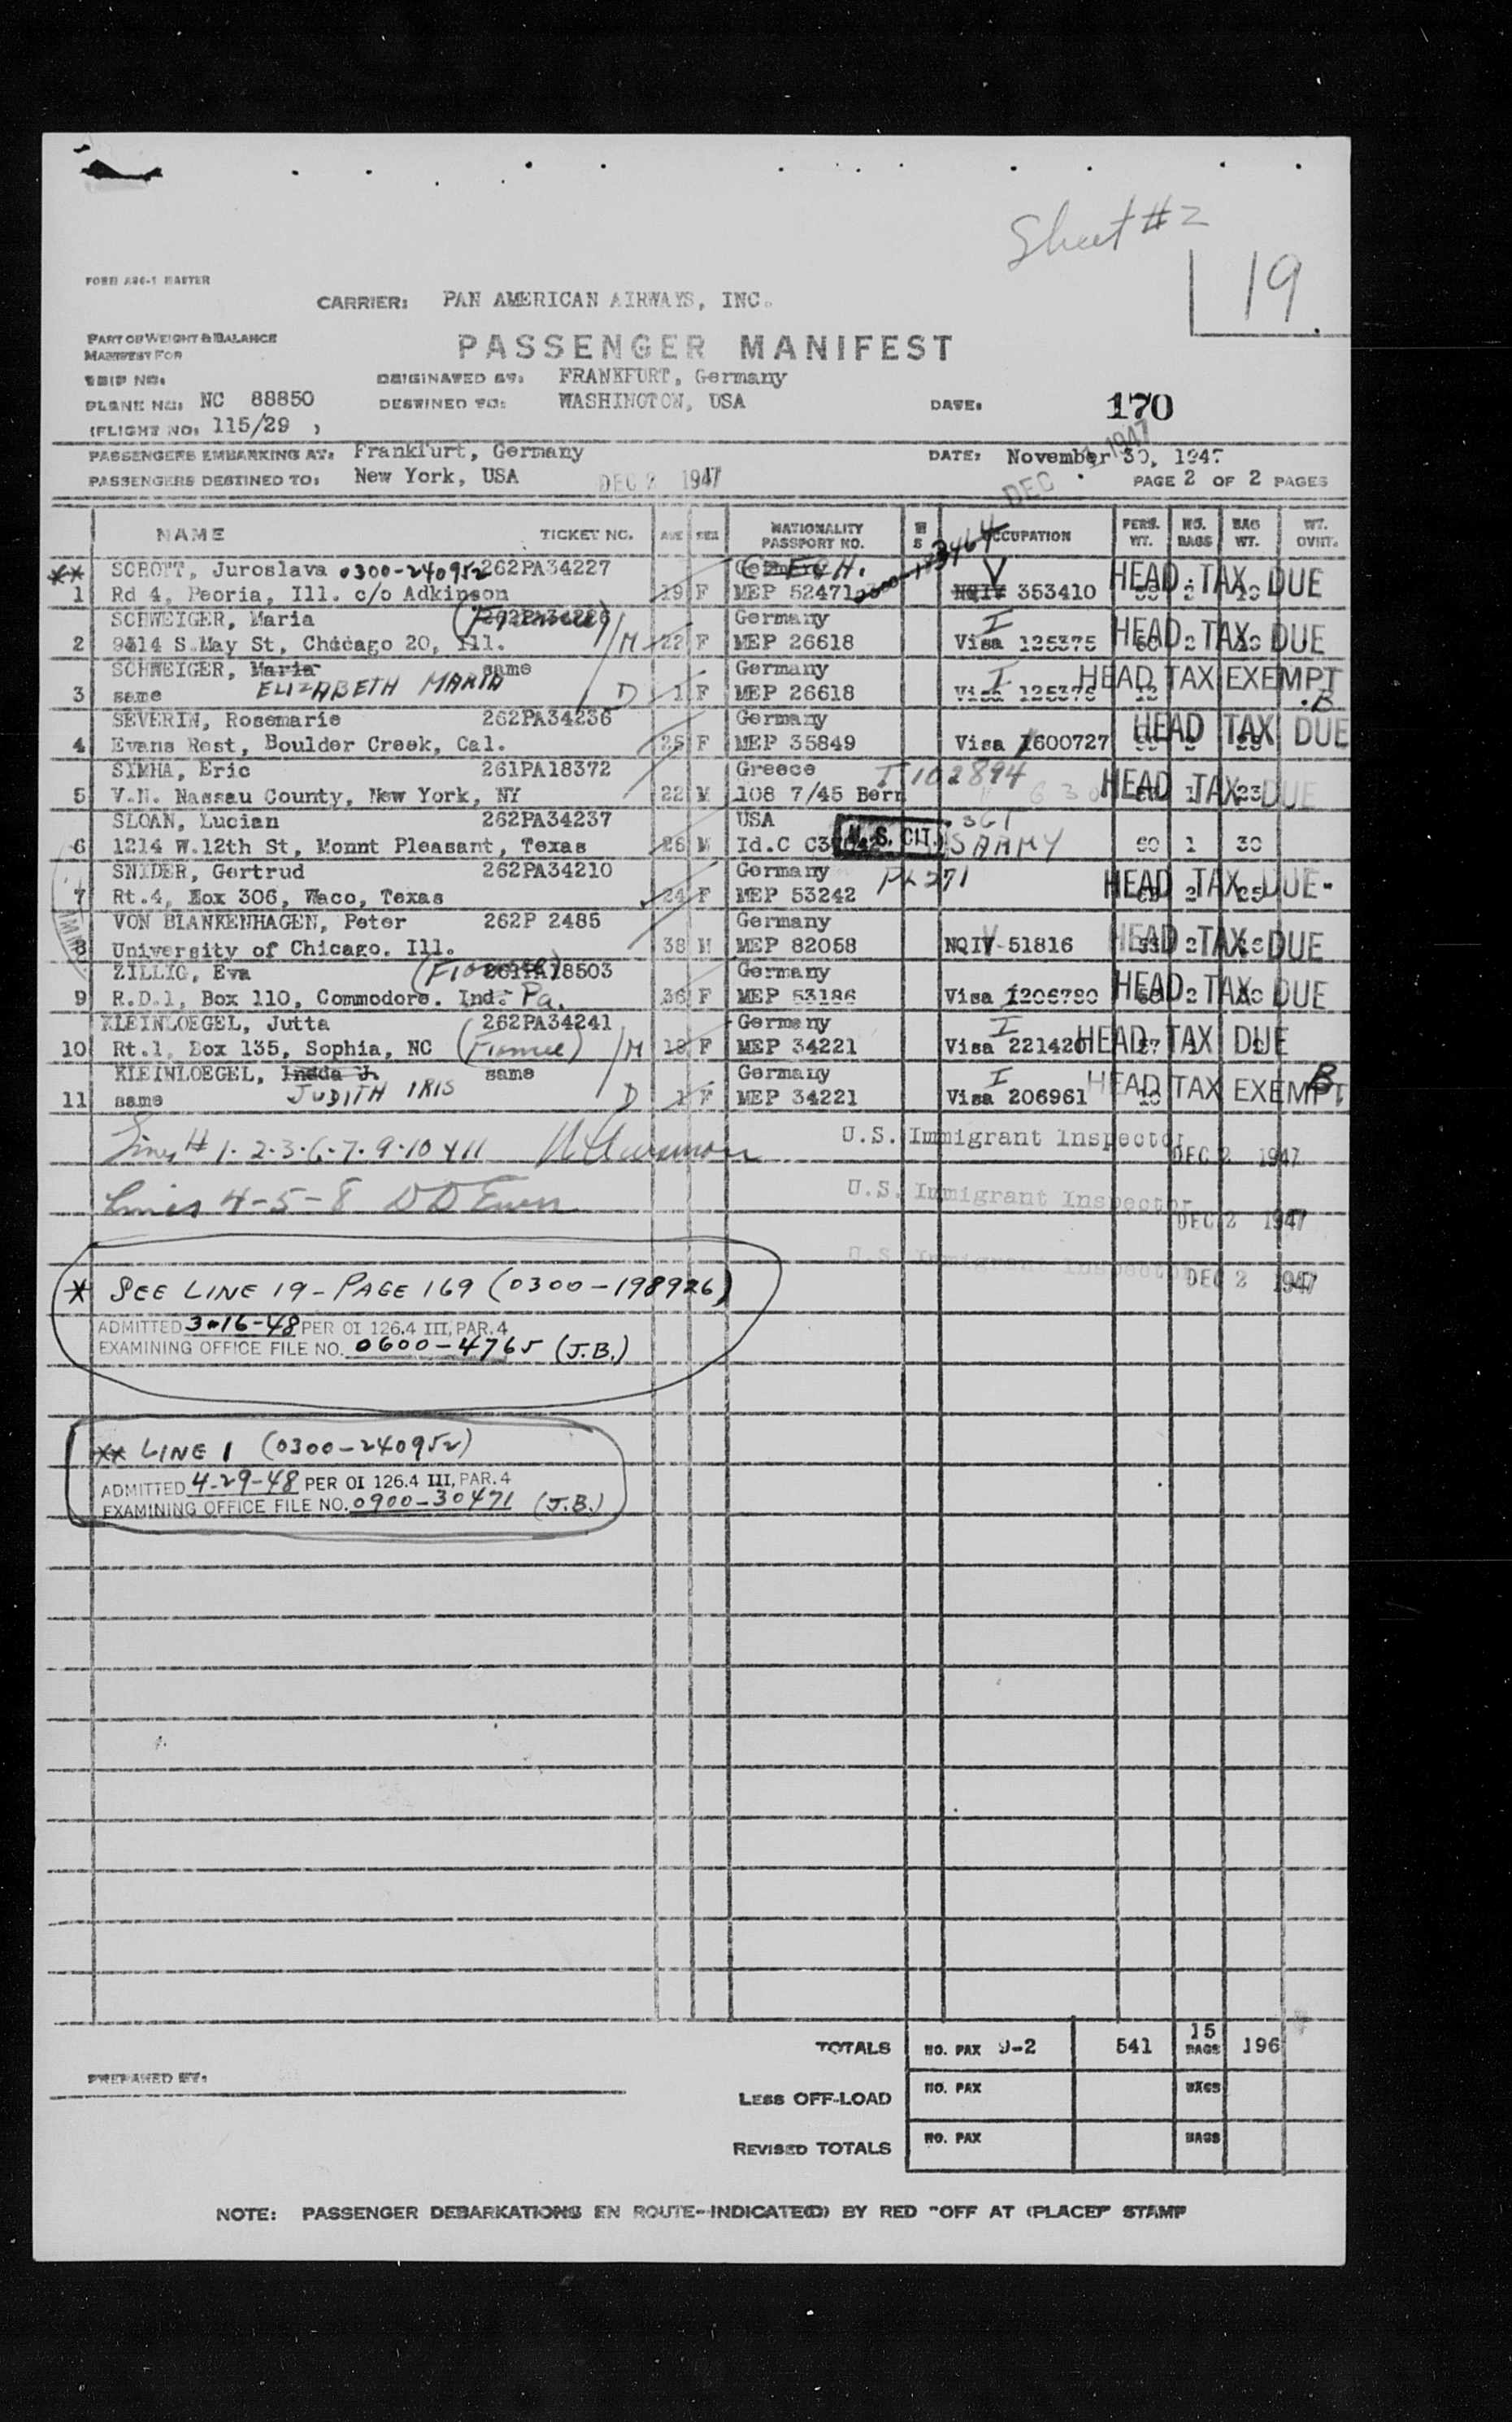 Sheet #2
19
FORM A20-1 MASTER
CARRIER: PAN AMERICAN AIRWAYS, INC.
PART OF WEIGHT & BALANCE
MANIFEST FOR
PASSENGER MANIFEST
TRIP NO:
ORIGINATED AT: FRANKFURT, Germany
PLANE NO: NC 88850
DESTINED TO: WASHINGTON, USA
DATE: 170
(FLIGHT NO: 115/29 )
PASSENGERS EMBARKING AT: Frankfurt, Germany
DATE: November 30, 1947
DEC 1947
PASSENGERS DESTINED TO: New York, USA DEC 2 1947
PAGE 2 OF 2 PAGES
NAME TICKET NO. AGE SEX NATIONALITY PASSPORT NO. OCCUPATION PERS. WT. NO. BAGS BAG WT. WT. OVHT.
** SCHOTT, Juroslava 0300-240952 262PA34227 CZECH.
1 Rd 4, Peoria, Ill. c/o Adkinson 19 F MEP 52471 NQIV 353410 V HEAD TAX DUE
SCHWEIGER, Maria (Fiancee) Germany I
2 9614 S.May St, Chicago 20, Ill. M 22 F MEP 26618 Visa 125375 HEAD TAX DUE
SCHWEIGER, Maria same Germany I
3 same ELIZABETH MARIA D 1 F MEP 26618 Visa 125376 HEAD TAX EXEMPT B
SEVERIN, Rosemarie 262PA34236 Germany
4 Evans Rest, Boulder Creek, Cal. 25 F MEP 35849 Visa 1600727 HEAD TAX DUE
SIMHA, Eric 261PA18372 Greece I 102894
5 V.N. Nassau County, New York, NY 22 M 108 7/45 Bern HEAD TAX DUE 1 23
SLOAN, Lucian 262PA34237 USA 361
6 1214 W.12th St, Monnt Pleasant, Texas 26 M Id.C U.S. CIT. US ARMY 80 1 30
SNIDER, Gertrud 262PA34210 Germany PL 271
7 Rt.4, Box 306, Waco, Texas 24 F MEP 53242 HEAD TAX DUE
VON BLANKENHAGEN, Peter 262P 2485 Germany
8 University of Chicago. Ill. 38 M MEP 82058 NQIV 51816 HEAD TAX DUE
ZILLIG, Eva (Fiancee) 261PA18503 Germany
9 R.D.1, Box 110, Commodore. Ind. Pa. 36 F MEP 53186 Visa 1206780 HEAD TAX DUE
KLEINLOEGEL, Jutta 262PA34241 Germany I
10 Rt.1, Box 135, Sophia, NC (Fiancee) M 18 F MEP 34221 Visa 221426 HEAD TAX DUE
KLEINLOEGEL, Indda J. same Germany I
11 same JUDITH IRIS D 1 F MEP 34221 Visa 206961 HEAD TAX EXEMPT B
Lines # 1-2-3-6-7-9-10 & 11
U.S. Immigrant Inspector DEC 2 1947
Lines 4-5-8
U.S. Immigrant Inspector DEC 2 1947
U.S. Immigrant Inspector DEC 2 1947
* SEE LINE 19 - PAGE 169 (0300-198926)
ADMITTED 3-16-48 PER OI 126.4 III, PAR. 4
EXAMINING OFFICE FILE NO. 0600-4765 (J.B.)
** LINE 1 (0300-240952)
ADMITTED 4-29-48 PER OI 126.4 III, PAR. 4
EXAMINING OFFICE FILE NO. 0900-30471 (J.B.)
TOTALS NO. PAX 9-2 541 15 BAGS 196
PREPARED BY:
LESS OFF-LOAD NO. PAX BAGS
REVISED TOTALS NO. PAX BAGS
NOTE: PASSENGER DEBARKATIONS EN ROUTE-INDICATE(D) BY RED "OFF AT (PLACE)" STAMP